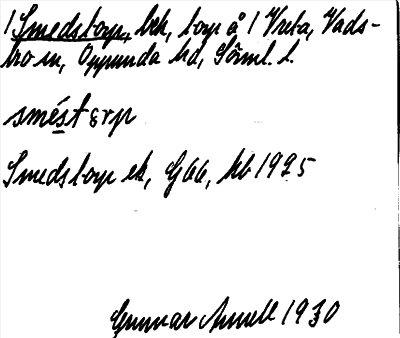 1 Smedstorp, beh, torp å 1 Vreta, Vads-
bro sn, Oppunda hd, Sörml. l.
smést ɛrp
Smedstorp ek, G 66, kb 1925
Gunnar Amell 1930